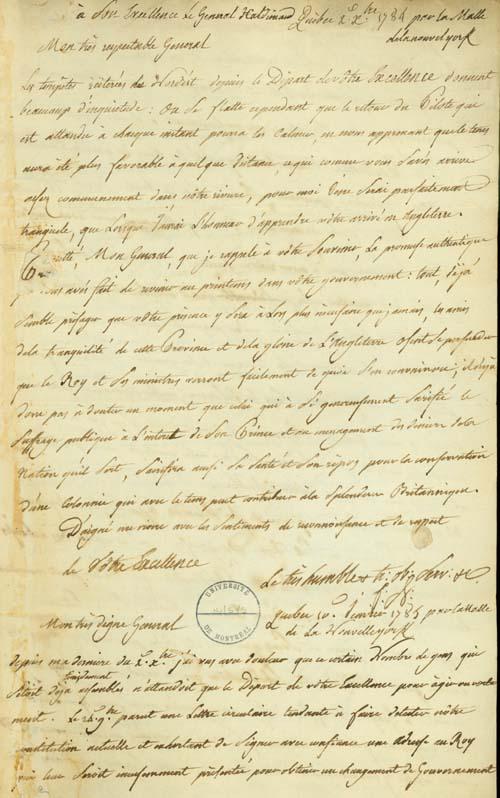 à Son Excellence le General Haldimand Quebec 2d. Xbre 1784 par la Malle
de la nouvel york
Mon très respectable General
Les tempêtes réiterées du Nordest depuis le Départ de vôtre Excellence donnent
beaucoup d'inquiétude : On se flatte cependant que le retour du Pilote qui
est attendu à chaque instant pourra les calmer, en nous apprenant que le tems
aura été plus favorable à quelque distance, ce qui comme vous savés arrive
assez communement dans nôtre riviere, pour moi je ne serai parfaitement
tranquile, que lorsque j'aurai l'honneur d'apprendre vôtre arrivé en Angleterre.
Mon General, que je rappele à vôtre Souvenir, La promesse authentique
vous avés fait de revenir au printems dans vôtre gouvernement : tout, déjà
semble présager que vôtre présence y sera alors plus necessaire que jamais, les amis
de la tranquilité de cette Province et de la gloire de L'Angleterre osent se persuader
que le Roy et Ses ministres verront facilement de quoi S'en convaincre ; il n'ÿ a
donc pas à douter un moment que celui qui a Si genereusement Sacrifié le
Suffrage publique à L'interet de Son Prince et au menagement des deniers de la
Nation qu'il Sert, Sacrifira aussi Sa Santé et Son repos pour la conservation
d'une Colonnie qui avec le tems peut contribuer à la Splendeur Britannique.
Daigné me croire avec les Sentiments de reconnoissance et de respect
de Vôtre Excellence
Le très humble & tr. ob. Serv. &c
UNIVERSITÉ DE MONTRÉAL
Mon très digne General
Quebec 10. Janvier 1785 par la Malle
de La Nouvelle york
depuis ma derniere du 2d. Xbre j'ai vu avec douleur que ce certain Nombre de gens qui
s'étoit déjà assemblés n'attendoit que le Départ de vôtre Excellence pour agir ouverte-
ment. Le parut une Lettre circulaire tendante à faire detester nôtre
constitution actuelle et exhortant de Signer avec confiance une adresse au Roy
qui leur Seroit incessamment présentée pour obtenir un changement de Gouvernement